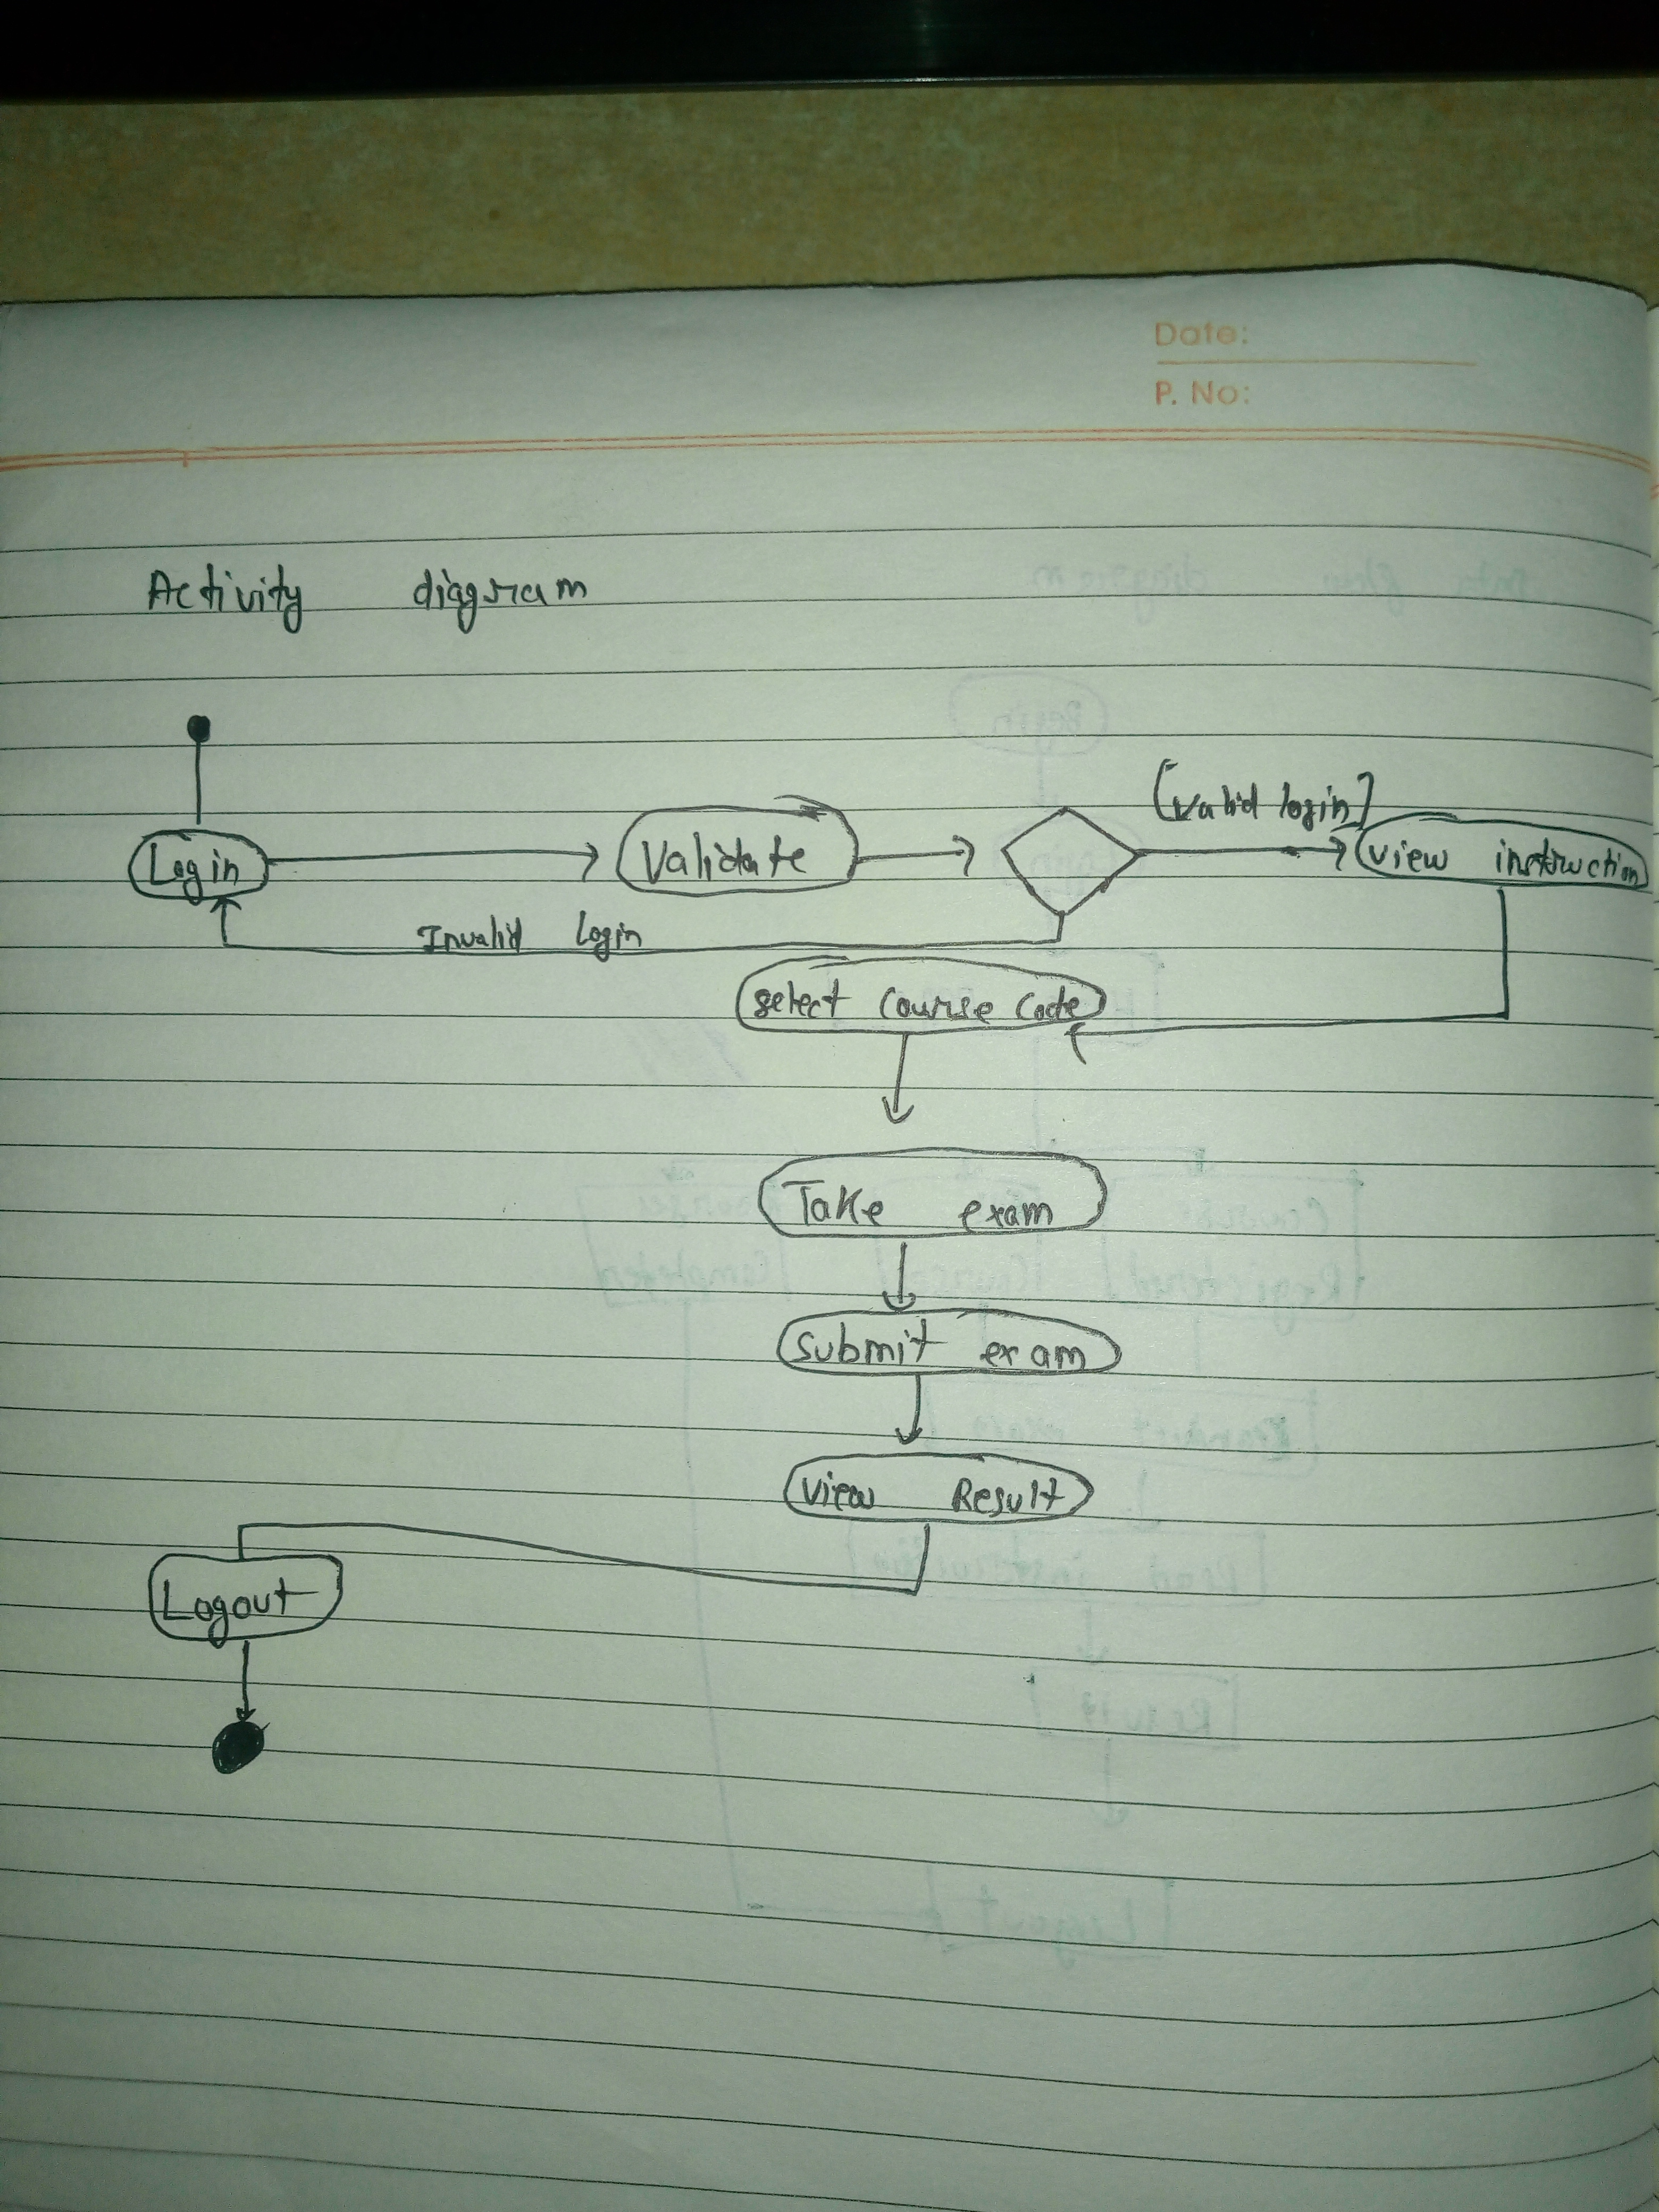 Date:
P. No:
Activity diagram
[Valid login]
Login
Validate
view instruction
Invalid Login
select course code
Take exam
submit exam
view Result
Logout